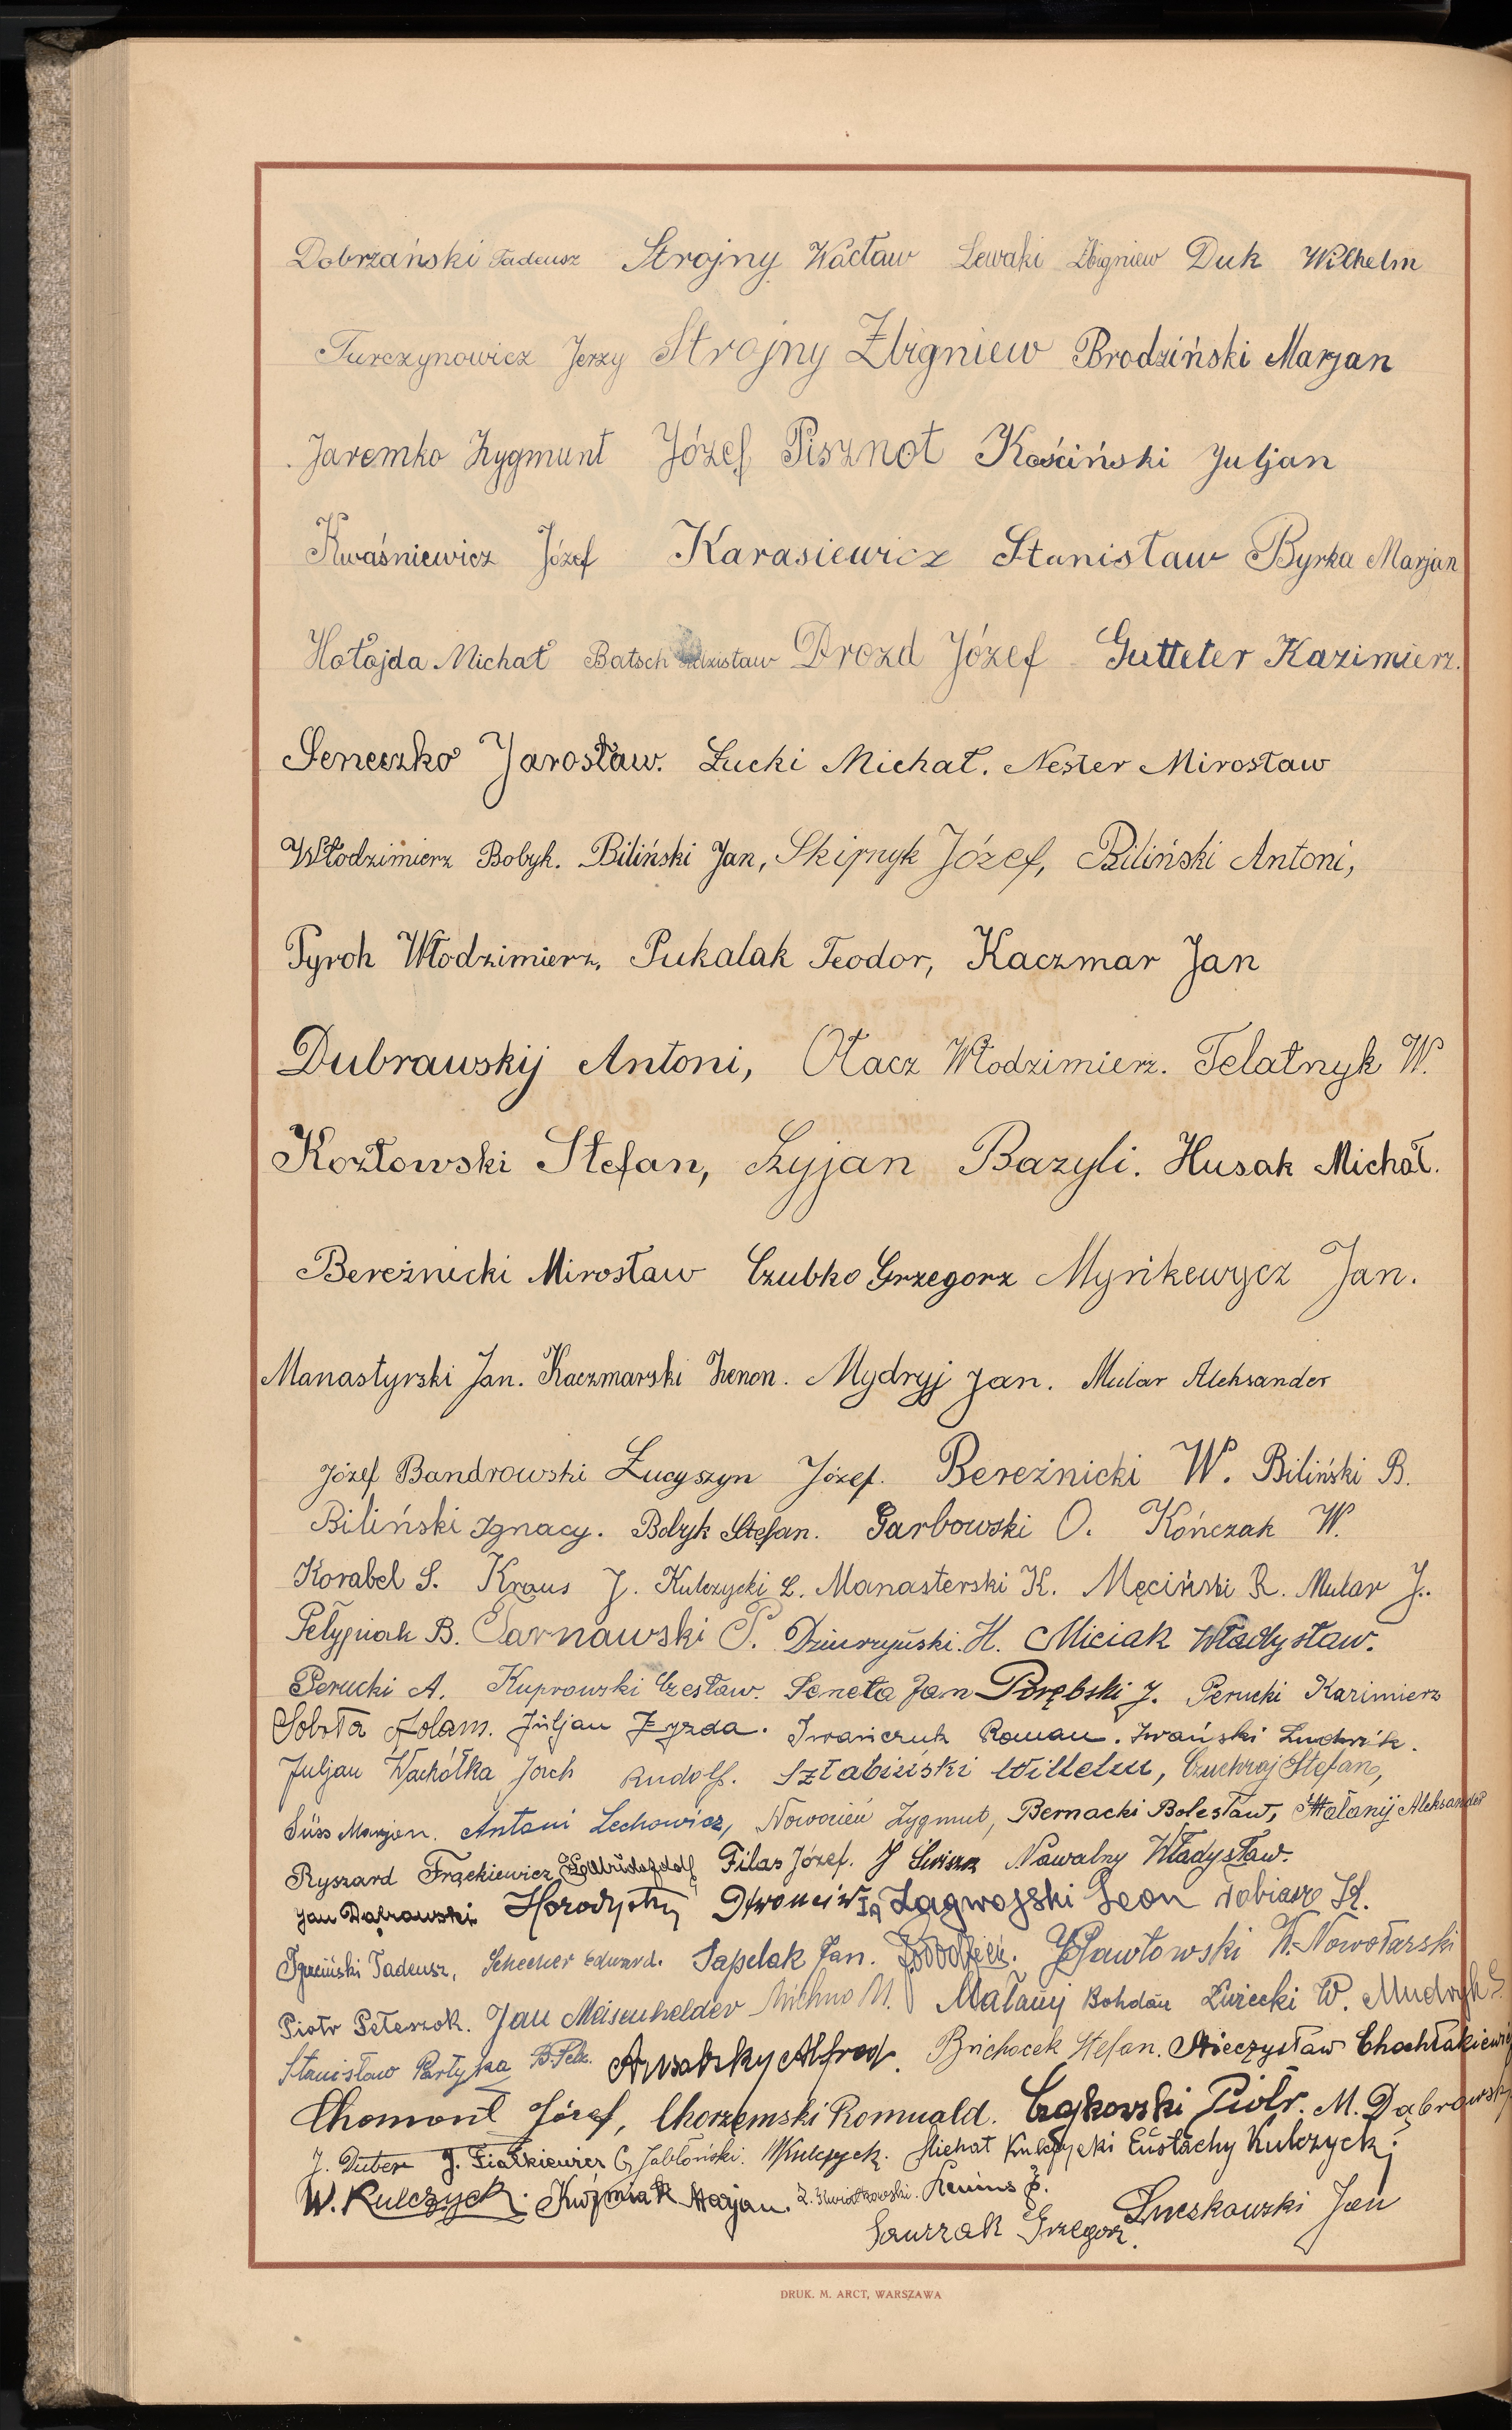 Dobrzański Tadeusz Strojny Wacław Lewaki Zbigniew Duk Wilhelm
Turczynowicz Jerzy Strojny Zbigniew Brodziński Marjan
Jaremko Zygmunt Józef Pisznot Kościński Juljan
Kwaśniewicz Józef Karasiewicz Stanisław Byrka Marjan
Hołojda Michał Batsch Drozd Józef Gutteter Kazimierz.
Seneczko Jarosław. Łucki Michał. Nester Mirosław
Włodzimierz Bobyk. Biliński Jan, Skipnyk Józef, Biliński Antoni,
Pyroh Włodzimierz, Pukalak Teodor, Kaczmar Jan
Dubrawskij Antoni, Otacz Włodzimierz. Telatnyk W.
Kozłowski Stefan, Szyjan Bazyli. Husak Michał.
Bereźnicki Mirosław Czubko Grzegorz Myńkewycz Jan.
Manastyrski Jan. Kaczmarski Zenon. Mydryj Jan. Mular Aleksander
Józef Bandrowski Łucyszyn Józef. Bereźnicki W. Biliński B.
Biliński Ignacy. Bdzyk Stefan. Garbowski O. Kończak W.
Korabel S. Kraus J. Kulczycki L. Manasterski K. Męciński R. Mular J.
Pełypiak B. Tarnawski P. Dziurzyński. H. Miciak Władysław.
Perucki A. Kuprowski Czesław. Seneta Jan Porębski J. Perucki Kazimierz
Sobota Adam. Juljan Zyzda. Iwańczuk Roman. Iwański Ludwik.
Juljan Wachółka Jorch Rudolf. Sztabiński Wilhelm, Czuchraj Stefan,
Süss Marjan. Antoni Lechowicz, Nowosień Zygmut, Bernacki Bolesław, Małanij Aleksander
Ryszard Frąckiewicz Filas Józef. J Nawalny Władysław.
Jan Dąbrowski. Horodyski Zagwojski Leon Tobiasz
Tadeusz, Schecher Edward. Sapelak Jan. Pawłowski W. Nowotarski
Piotr Peteszok. Jan Meisenhelder Michno M. Małanij Bohdan Żurecki W. Mudryk S.
Stanisław Partyka B. Pelz. Alfred. Brichacek Stefan. Mieczysław Chochłakiewicz
Chomont Józef, Chorzemski Romuald. Czajkowski Piotr. M. Dąbrowski
J. Duber J. Fiałkiewicz G. Jabłoński. Kulczyck. Michał Kulczycki Eustachy Kulczycki
W. Kulczyck. Kuźmiak Marjan. Z. Kwiatkowski. Lenius J.
Saurzak Grzegorz. Luczkowski Jan
DRUK. M. ARCT, WARSZAWA